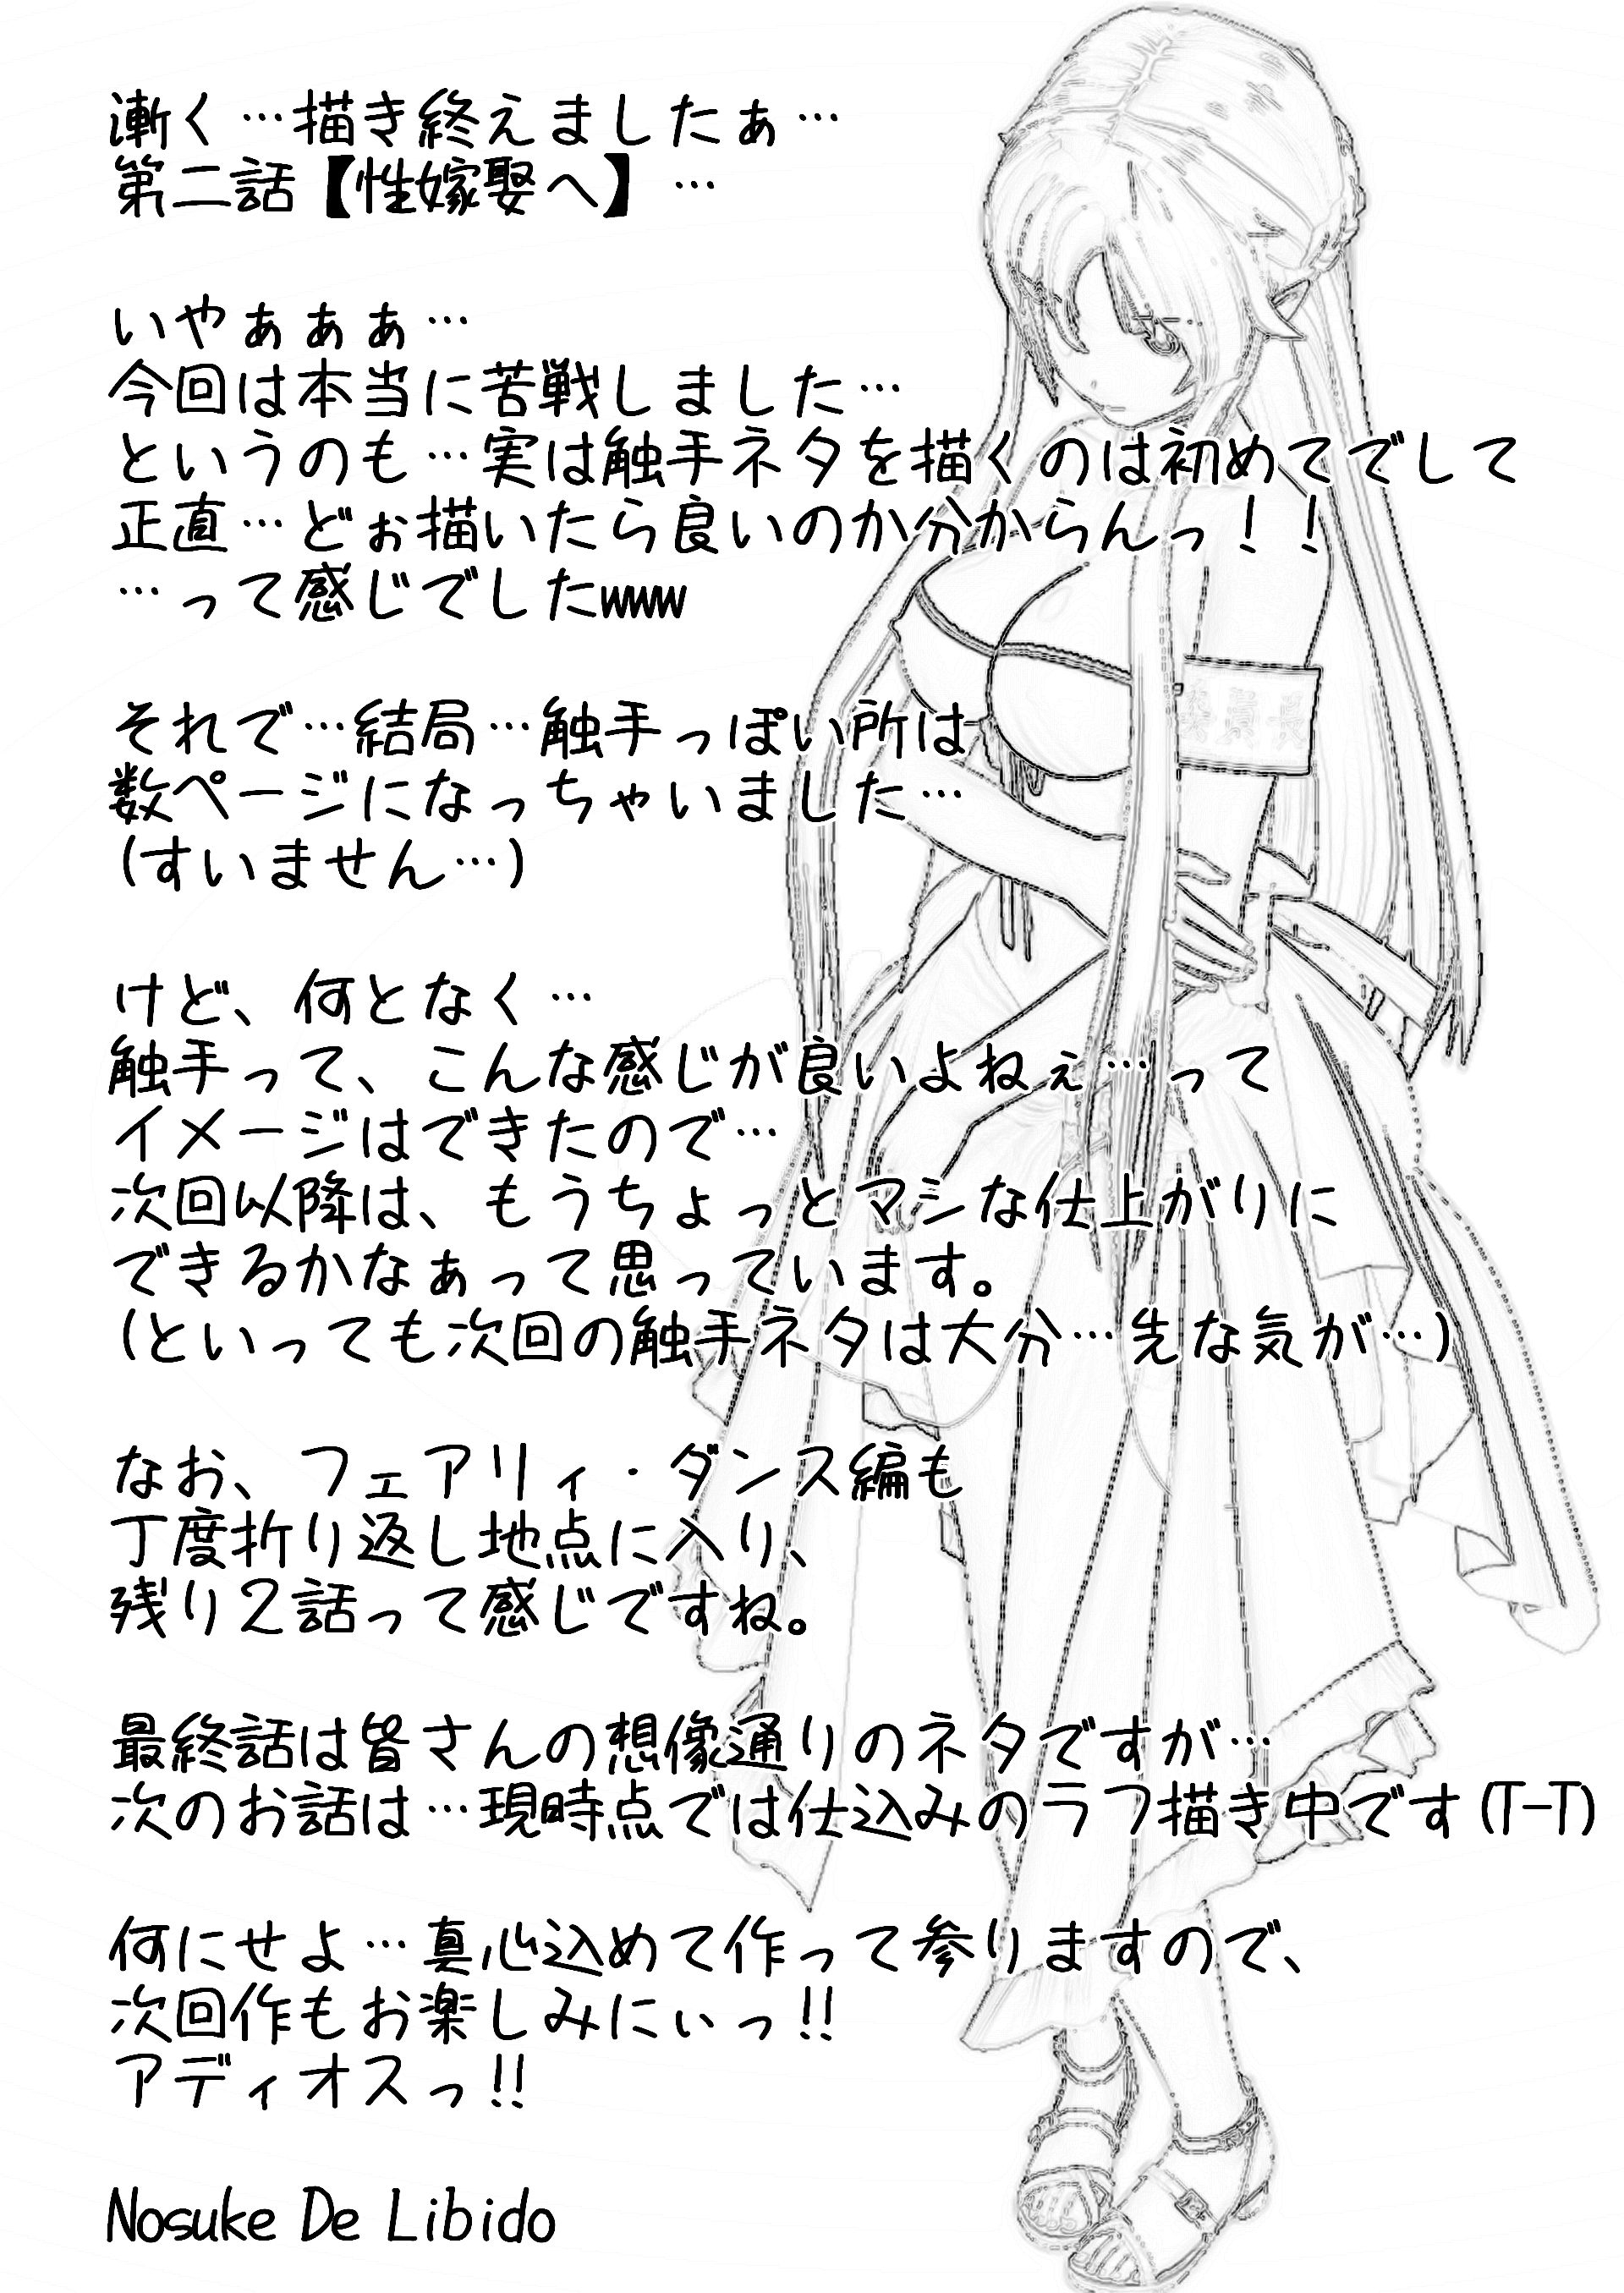 漸く…描き終えましたぁ…
第二話【性嫁娶へ】…
いやぁぁぁ…
今回は本当に苦戦しました…
というのも…実は触手ネタを描くのは初めてでして
正直…どぉ描いたら良いのか分からんっ！！
…って感じでしたwww
それで…結局…触手っぽい所は
数ページになっちゃいました…
(すいません…)
けど、何となく…
触手って、こんな感じが良いよねぇ…って
イメージはできたので…
次回以降は、もうちょっとマシな仕上がりに
できるかなぁって思っています。
(といっても次回の触手ネタは大分…先な気が…)
なお、フェアリィ・ダンス編も
丁度折り返し地点に入り、
残り２話って感じですね。
最終話は皆さんの想像通りのネタですが…
次のお話は…現時点では仕込みのラフ描き中です(T-T)
何にせよ…真心込めて作って参りますので、
次回作もお楽しみにぃっ!!
アディオスっ!!
Nosuke De Libido